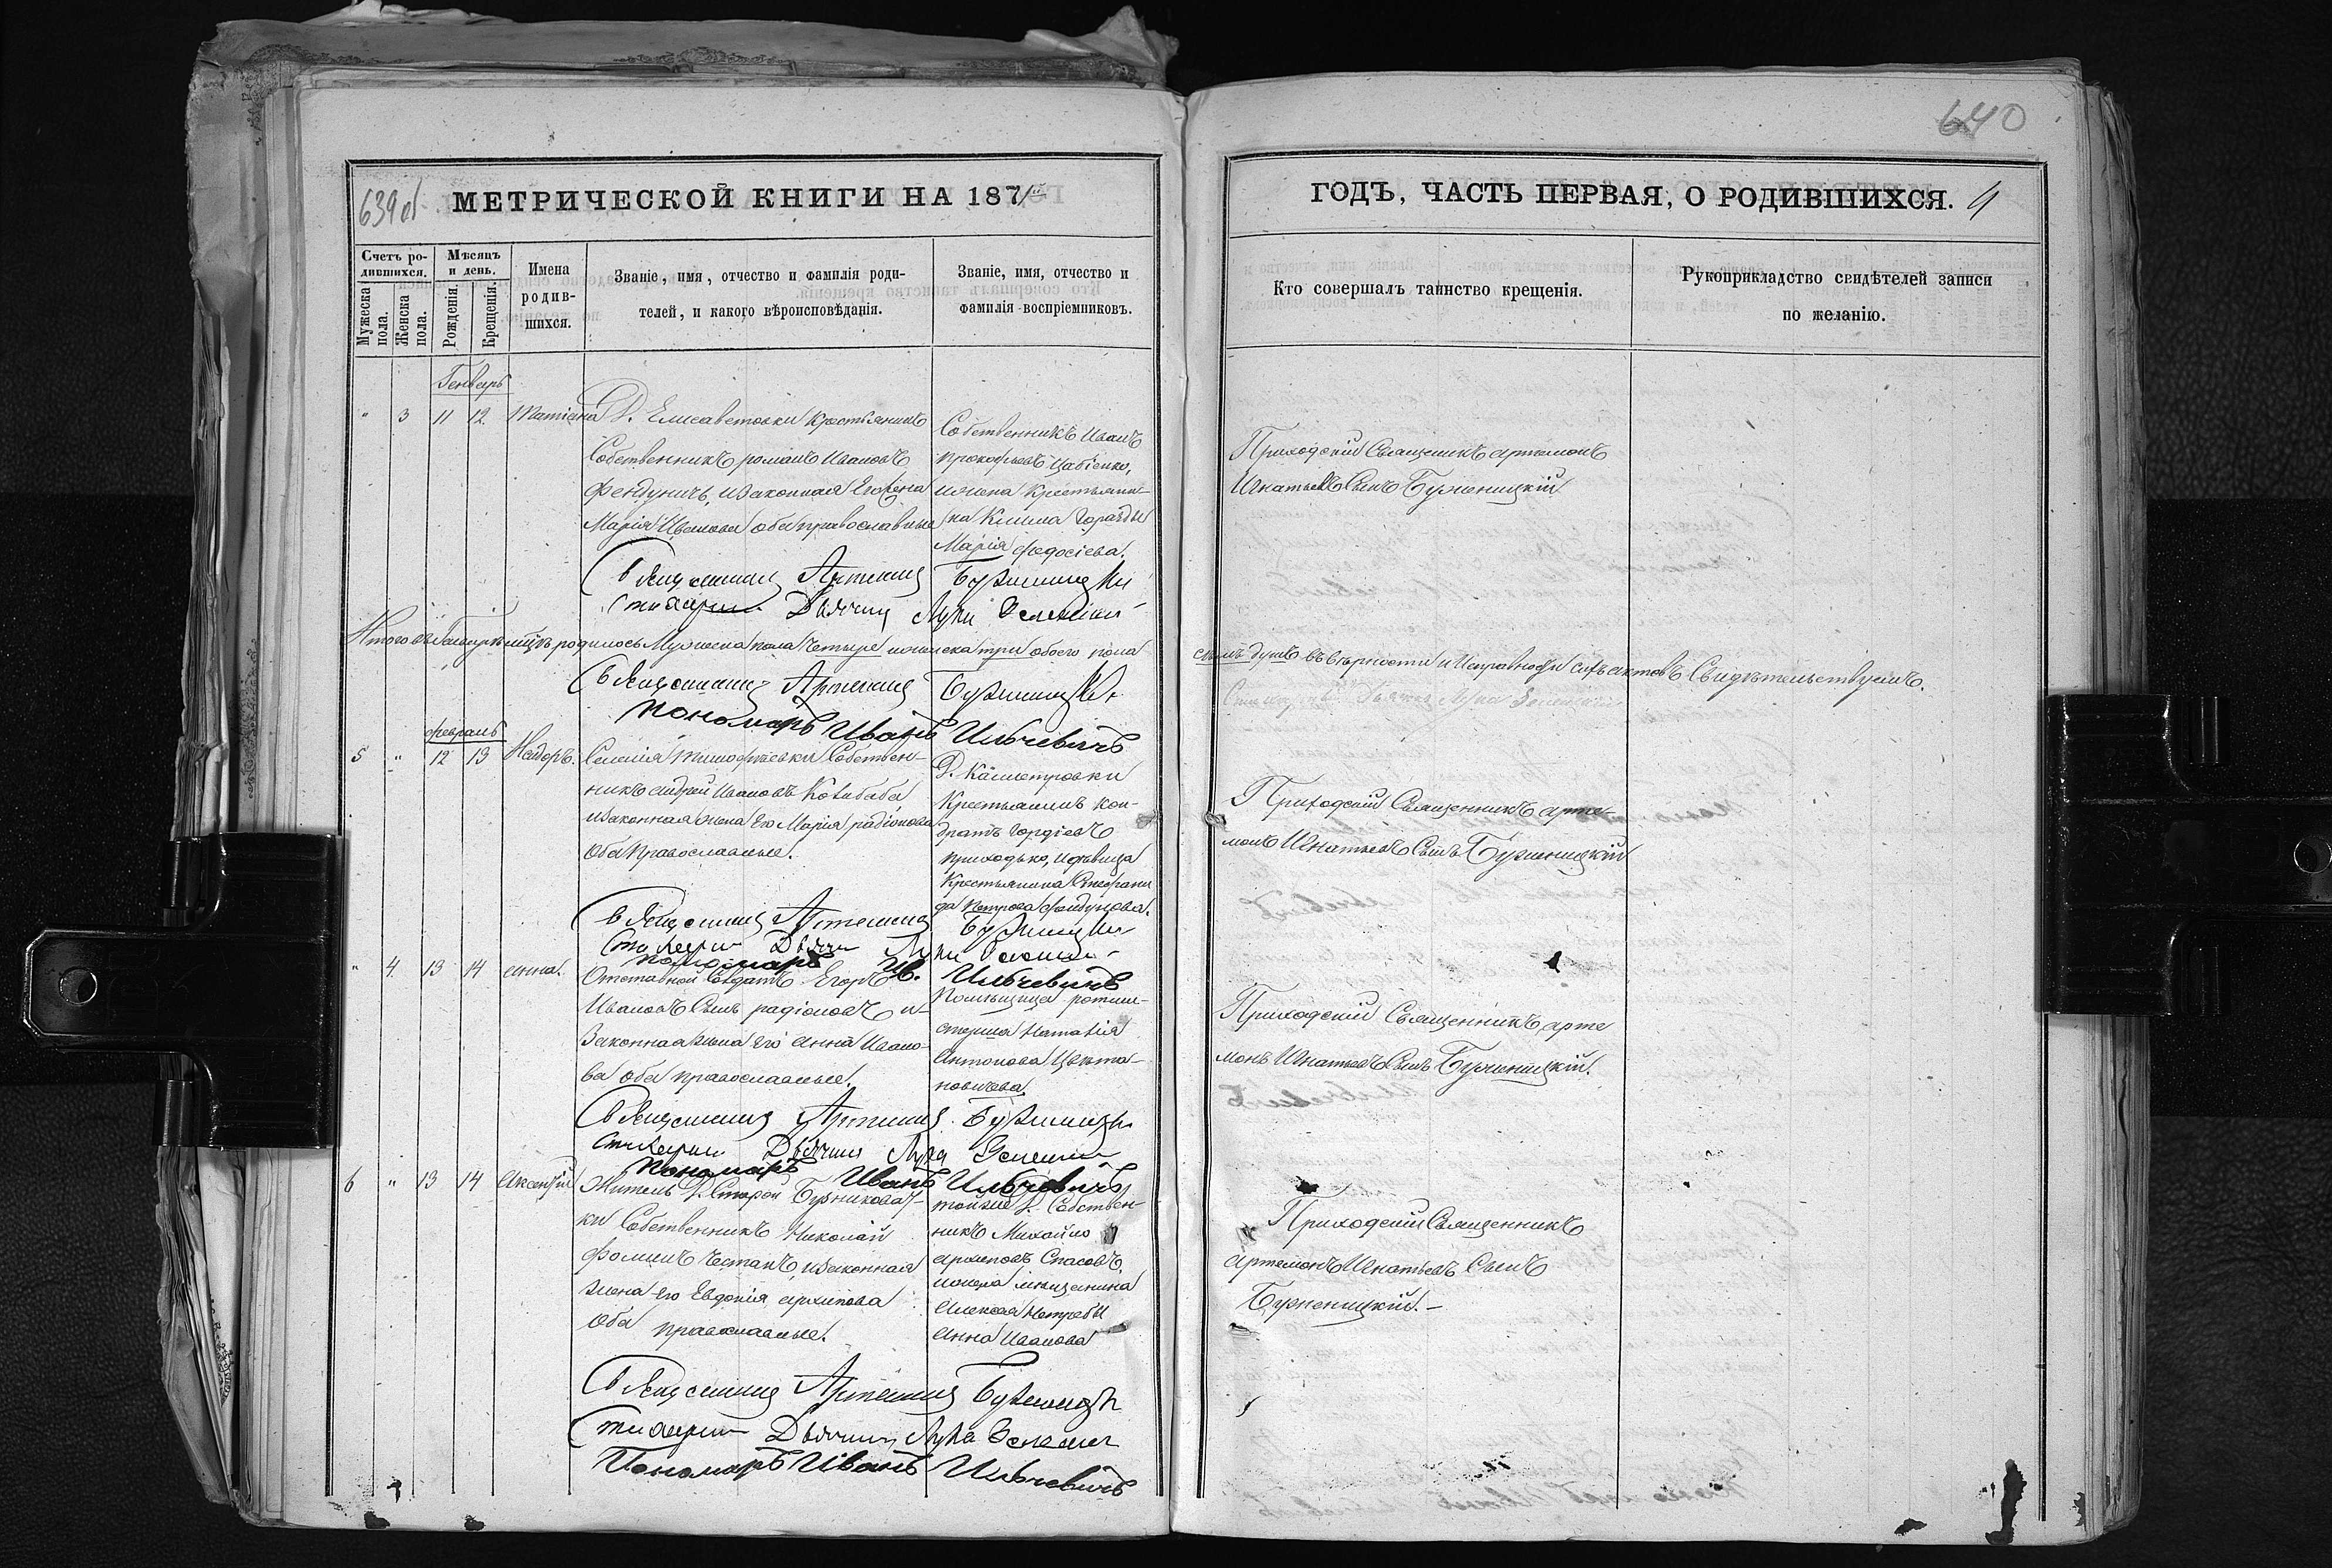 640
639 об
МЕТРИЧЕСКОЙ КНИГИ НА 1871й
ГОДЪ, ЧАСТЬ ПЕРВАЯ, О РОДИВШИХСЯ. 4
Счетъ ро-
дившихся.
Мужеска
пола.
Женска
пола.
Мѣсяцъ
и день.
Рожденія.
Крещенія.
Имена
родив-
шихся.
Званіе, имя, отчество и фамилія роди-
телей, и какого вѣроисповѣданія.
Званіе, имя, отчество и
фамилія воспріемниковъ.
Кто совершалъ таинство крещенія.
Рукоприкладство свидѣтелей записи
по желанію.
Генварь
" 3 11 12 Татіана
Д. Елисаветовки крестьянинъ
Собственникъ романъ Ивановъ
Фендуничъ, изаконная Его жена
Марія Иванова оба православные
Собственникъ Иванъ
Прокофьевъ Цабіенко,
ижена Крестьяни-
на Клима Горазды
Марія Федосіева.
Приходскій Священникъ артемонъ
Игнатьевъ Сынъ Буженицкій
Священникъ Артемонъ Буженицкій
Стихарный Дьячекъ Лука
Итого въ Генварѣ мцѣ родилось Мужеска пола Четыре иженска три обоего пола
семь душъ въ вѣрности и Исправности сихъ актовъ Свидѣтельствуемъ.
Священникъ Артемонъ Буженицкій
Пономарь Иванъ Ильчевичъ
февраль
5 " 12 13 Исидоръ.
Селенія тимофѣевки Собствен-
никъ андрей Ивановъ Котибаба
изаконная жена Его Марія радіонова
Оба Православные.
Д. Каиметровки
Крестьянинъ Кон-
дратъ Гордіевъ
приходько, идѣвица
Крестьянина Стефани
да Петрова Фендунова.
Приходскій Священникъ арте-
монъ Игнатьевъ Сынъ Буженицкій
Священникъ Артемонъ Буженицкій
Стихарный Дьячекъ Лука
Пономарь Ив. Ильчевичъ
" 4. 13 14 анна.
Отставной Солдатъ Егоръ
Ивановъ Сынъ радіоновъ и
Законная жена Его Анна Ивано-
ва оба православные.
Помѣщица ротми-
стрша Наталія
Антонова Цвѣта-
новичева
Приходскій Священникъ арте
монъ Игнатьевъ Сынъ Буженицкій.
Священникъ Артемонъ Буженицкій
Стихарный Дьячекъ Лука
Пономарь Иванъ Ильчевичъ
6 " 13 14 Аксентій
Житель Д. Старой Бузниковат-
ки Собственникъ Николай
Фоминъ Чепакъ, изаконная
жена Его Евдокія архипова
Оба православные.
тойже Д. Собствен-
никъ Михайло
архиповъ Спасовъ,
ижена мѣщанина
Алексея Нетребы
Анна Иванова
Приходскій Священникъ
артемонъ Игнатьевъ Сынъ
Буженицкій.
Священникъ Артемонъ Буженицкій
Стихарный Дьячекъ Лука
Пономарь Иванъ Ильчевичъ